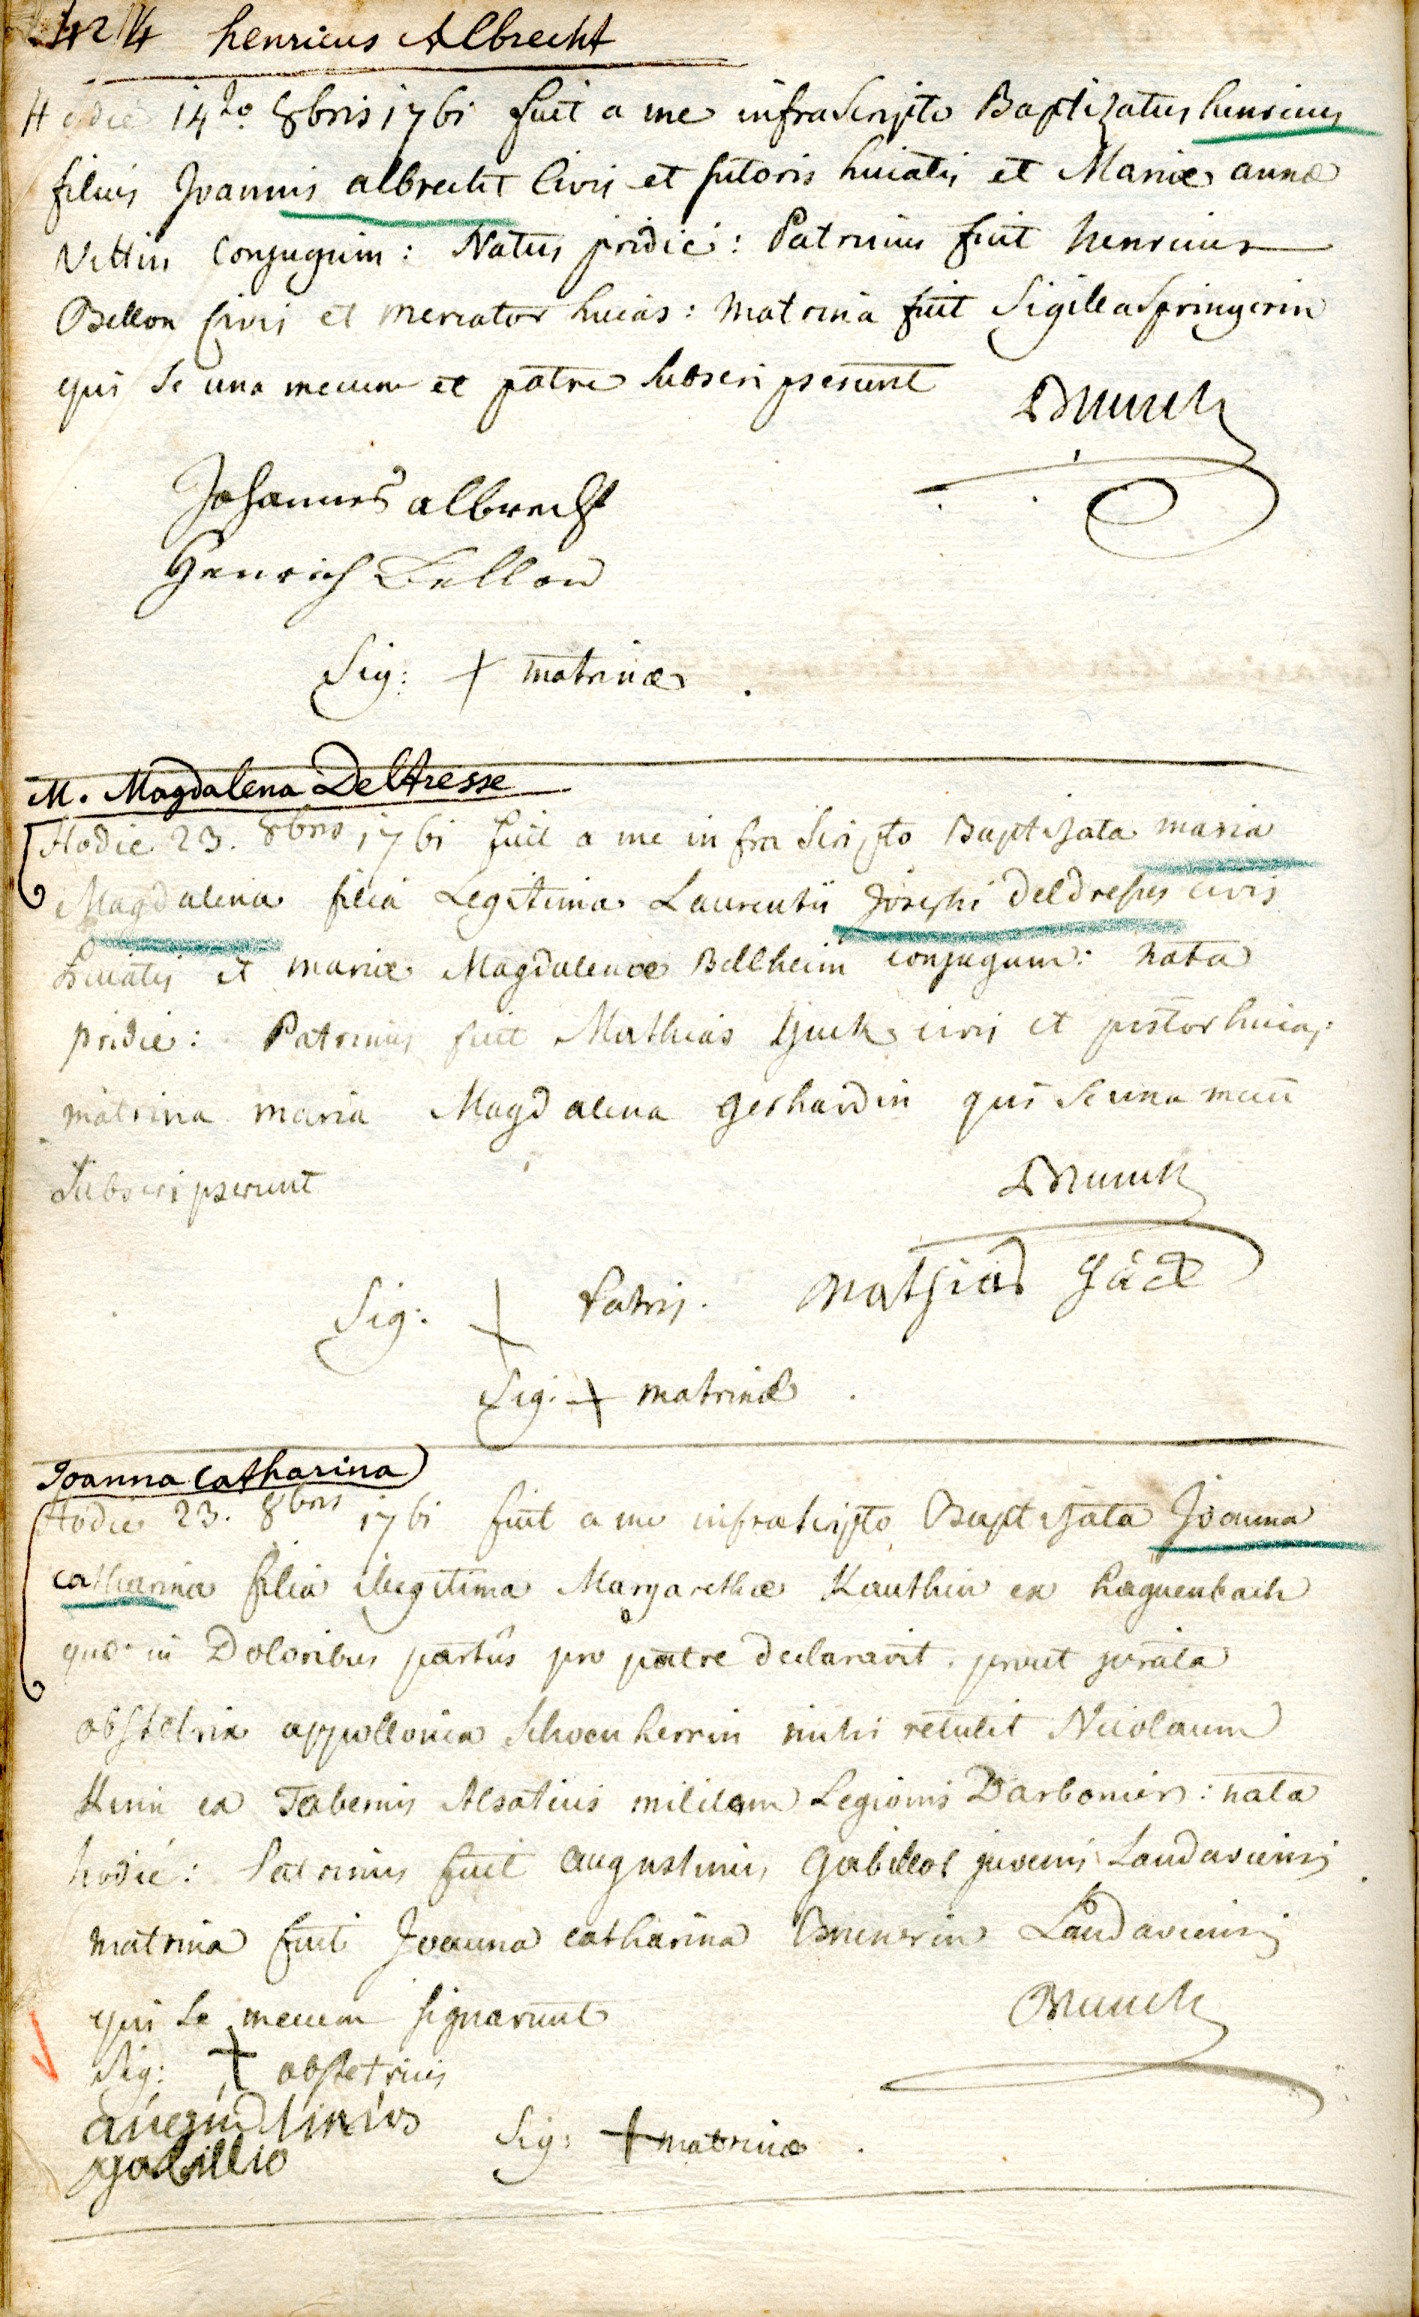 424 henricus Albrecht
Hodie 14to 8bris 1761 fuit a me infrascripto Baptizatus henricus
filius Joannis albrecht Civis et sutoris huiatis et Mariæ annæ
Conjugum: Natus pridie: Patrinus fuit henricus
Bellon Civis et mercator huias: matrina fuit Sigilla Springerin
qui se una mecum et patre subscripserunt
Brunck
Johannes albrecht
Henrich Bellon
Sig: + matrinæ
M. Magdalena Deltresse
Hodie 23. 8bris 1761 fuit a me infra scripto Baptizata maria
Magdalena filia Legitima Laurentii Josephi Deldresses civis
huiatis et mariæ Magdalenæ Bellheim conjugum: nata
pridie: Patrinus fuit Mathias civis et pistor huias:
matrina maria Magdalena gerhardin qui se una mecū
subscripserunt
Brunck
Sig: + Patris. Mathias
Sig: + matrinæ
Joanna Catharina
Hodie 23. 8bris 1761 fuit a me infrascripto Baptizata Joanna
catharina filia illegitima Margarethæ Kauthin ex haguenbach
quæ in Doloribus partûs pro patre declaravit. prout jurata
obstetrix appollonia Schoenherrin mihi retulit Nicolaum
ex Tabernis Alsatiis militem Legionis Darbonier: nata
hodie: Patrinus fuit augustinus Gabillot juvenis Landaviensis
matrina fuit Joanna catharina Brunerin Landaviensis
qui se mecum signarunt
Brunck
Sig: + obstetricis
gabillio
Sig: + matrinæ